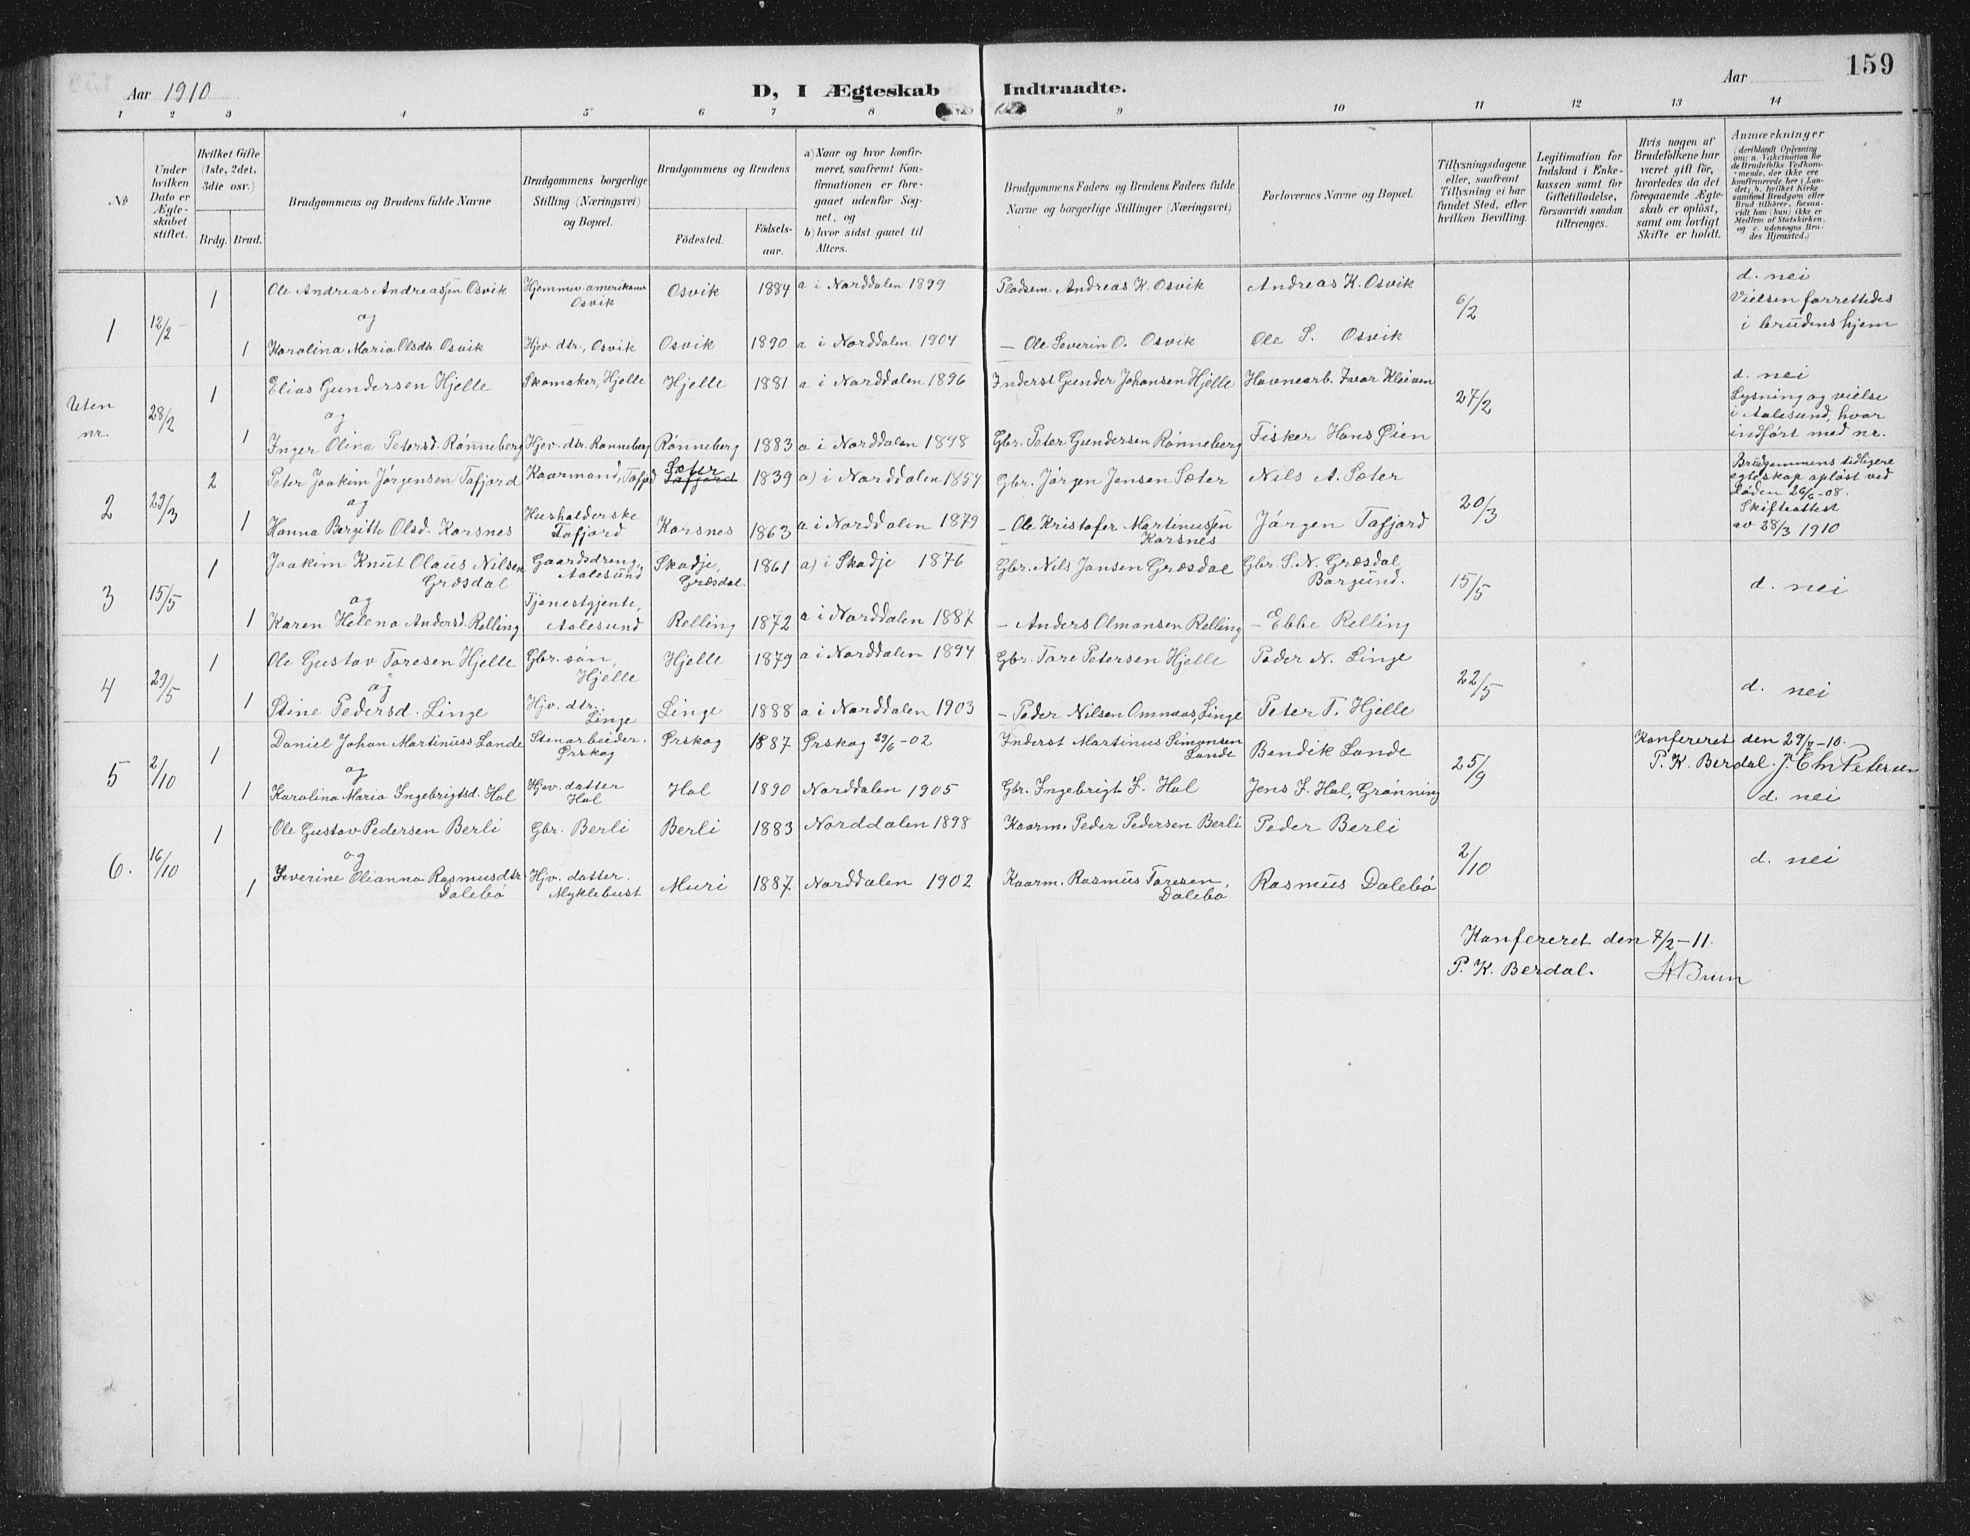 159
Aar 1910 D, I Ægteskab Indtraadte. Aar
1 2 3 4 5 6 7 8 9 10 11 12 13 14
No
Under hvilken Dato er Ægteskabet stiftet.
Hvilket Gifte (1ste, 2det, 3die osv.)
Brdg. Brud.
Brudgommens og Brudens fulde Navne
Brudgommens borgerlige Stilling (Næringsvei) og Bopæl.
Brudgommens og Brudens
Fødested. Fødselsaar.
a) Naar og hvor konfirmeret, saafremt Konfirmationen er foregaaet udenfor Sognet, og b) hvor sidst gaaet til Alters.
Brudgommens Faders og Brudens Faders fulde Navne og borgerlige Stillinger (Næringsvei)
Forlovernes Navne og Bopæl.
Tillysningsdagene eller, saafremt Tillysning ei har fundet Sted, efter hvilken Bevilling.
Legitimation for Indskud i Enkekassen samt for Giftetilladelse, forsaavidt saadan tiltrænges.
Hvis nogen af Brudefolkene har været gift før, hvorledes da det foregaaende Ægteskab er opløst, samt om lovligt Skifte er holdt.
Anmærkninger (deriblandt Oplysning om: a. Vakcination for de Brudefolks Vedkommende, der ikke ere konfirmerede her i Landet; b. hvilket Kirkesamfund Brudgom eller Brud tilhører, forsaavidt han (hun) ikke er Medlem af Statskirken, og c. udensogns Brudes Hjemsted.)
1 12/2 1 Ole Andreas Andreassen Osvik Hjemmev. amerikaner Osvik Osvik 1884 a i Norddalen 1899 Pladsem. Andreas K. Osvik Andreas K. Osvik 6/2 d. nei
og
1 Karolina Maria Olsdtr. Osvik Hjev. dtr., Osvik Osvik 1890 a i Norddalen 1904 — Ole Severin O. Osvik Ole S. Osvik Vielsen forrettedes i brudens hjem
Uten nr. 28/2 1 Elias Gundersen Hjelle Skomaker, Hjelle Hjelle 1881 a i Norddalen 1896 Inderst Gunder Johansen Hjelle Havnearb. Ivar Kleiven 27/2 d. nei
og
1 Inger Olina Petersd. Rønneberg Hjev. dtr. Rønneberg Rønneberg 1883 a i Norddalen 1898 Gbr. Peter Gundersen Rønneberg Fisker Hans Øien Lysning og vielse i Aalesund, hvor indført med nr.
2 29/3 2 Peter Joakim Jørgensen Tafjord Kaarmand, Tafjord Sæter Tafjord 1839 a) i Norddalen 1854 Gbr. Jørgen Jensen Sæter Nils A. Sæter 20/3 Brudgommens tidligere egteskap opløst ved Døden 26/6-08.
og
1 Hanna Bergitte Olsd. Korsnes Husholderske Tafjord Korsnes 1863 a i Norddalen 1879 — Ole Kristofer Martinussen Korsnes Jørgen Tafjord Skifteattest av 28/3 1910
3 15/5 1 Joakim Knut Olaus Nilsen Græsdal Gaardsdreng, Aalesund Skodje, Græsdal 1861 a) i Skodje 1876 Gbr. Nils Jansen Græsdal Gbr. S. N. Græsdal, Borgund. 15/5 d. nei
og
1 Karen Helena Andersd. Relling Tjenestgjente, Aalesund Relling 1872 a i Norddalen 1887 — Anders Olmansen Relling — Ebbe Relling
4 29/5 1 Ole Gustav Toresen Hjelle Gbr. søn, Hjelle Hjelle 1879 a i Norddalen 1894 Gbr. Tore Petersen Hjelle Peder N. Linge 22/5 d. nei
og
1 Stine Pedersd. Linge Hjv. dtr. Linge Linge 1888 a i Norddalen 1903 — Peder Nilsen Omnaas, Linge Peter T. Hjelle
5 2/10 1 Daniel Johan Martinuss. Lande Stenarbeider, Ørskog Ørskog 1887 Ørskog 29/6-02 Inderst Martinus Simonsen Lande Bendik Lande 25/9 Konfereret den 29/7-10. P. K. Berdal. J. Chr. Petersen
og
1 Karolina Maria Ingebrigtsd. Hol Hjev. datter Hol Hol 1890 Norddalen 1905 Gbr. Ingebrigt J. Hol Jens J. Hol, Grønning d. nei
6. 16/10 1 Ole Gustav Pedersen Berli Gbr. Berli Berli 1883 Norddalen 1898 Kaarm. Peder Pedersen Berli Peder Berli 2/10 d. nei
og
1 Severine Olianna Rasmusdtr. Dalebø Hjv. datter. Myklebust Muri 1887 Norddalen 1902 Kaarm. Rasmus Toresen Dalebø Rasmus Dalebø
Konfereret den 7/2-11.
P. K. Berdal. A Brun